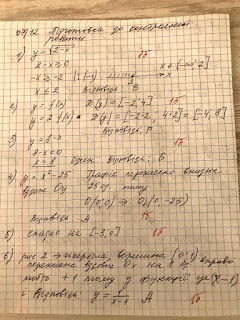 07.12 Підготовка до контрольної
роботи
1) y = √2-x
2-x≥0
-x≥-2 |:(-1)
x∈(-∞;2]
x≤2 Відповідь: В
1б
2) y = f(x) D(y) = [-2;4] 1б
y = 2f(x) D(y) = [-2·2; 4·2] = [-4;8]
Відповідь:
3) y = 8-x 1б
8-x=0
x=8 Відповідь: Б
4) y = x²-25 Графік перенесено вниз
вздовж Oy 25 од. тому
O(0;0) → O₁(0;-25)
Відповідь: А 1б
5) спадає на [-3;0] 1б
6) рис 2 → гіпербола, вершина (0;1)
перенесена вздовж Ox на 1 вправо
тобто +1 тому у функції це (x-1)
і Відповідь: y = 1/x-1 А
1б